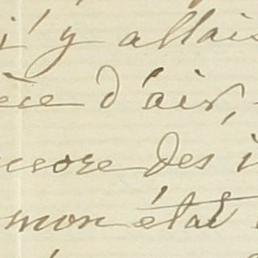 j'y allais
d'air,
encore des
mon état